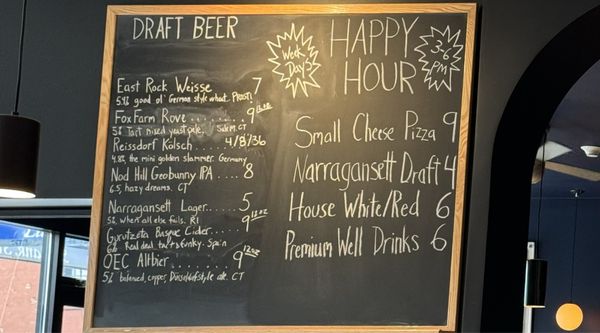 DRAFT BEER
East Rock Weisse 7
5% good ol' German style wheat. Prost!
Fox Farm Rove ........ 9 12oz
5% Tart mixed yeast pale. Salem. CT
Reissdorf Kölsch ...... 4/8/36
4.8% the mini golden slammer. Germany
Nod Hill Geobunny IPA .... 8
6.5, hazy dreams. CT
Narragansett Lager...... 5
5%, when all else fails. RI
Gurutzeta Basque Cider ..... 9 12oz
6% Real deal. tart & funky. Spain
OEC Altbier ........ 9 12oz
5% balanced, copper, Düsseldorf style ale. CT
Week Days
HAPPY HOUR
3-6 PM
Small Cheese Pizza 9
Narragansett Draft 4
House White/Red 6
Premium Well Drinks 6